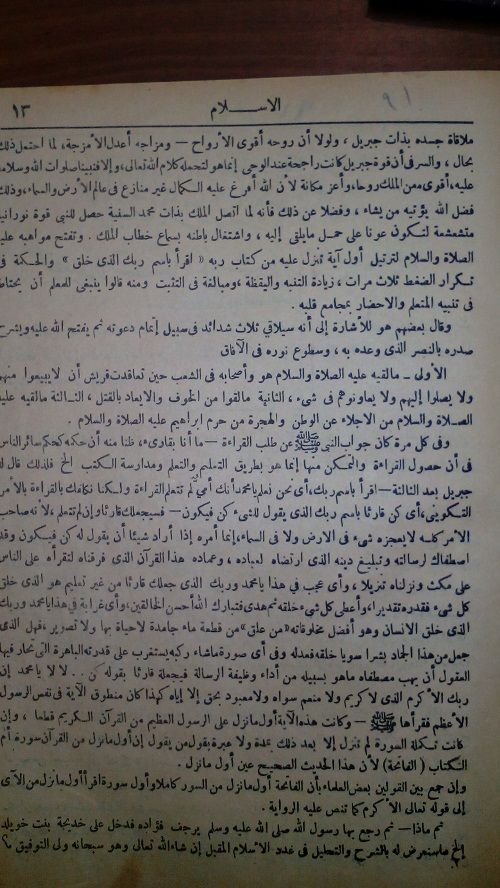 ٩١
الاســـلام
١٣
ملاقاة جسده بذات جبريل ، ولولا أن روحه أقوى الأرواح — ومزاجه أعدل الأمزجة، لما احتمل ذلك
بحال ، والسر فى أن قوة جبريل كانت راجحة عند الوحى إنما هو لتحمله كلام الله تعالى، وإلا فنبينا صلوات الله وسلامه
عليه، أقوى من الملك روحا، وأعز مكانة لأن الله أفرغ عليه الكمال غير منازع فى عالم الأرض والسماء، وذلك
فضل الله يؤتيه من يشاء ، وفضلا عن ذلك فأنه لما اتصل الملك بذات محمد السنية حصل للنبى قوة نورانية
متشعشعة لتكون عونا على حمل مايلقى إليه ، واشتغال باطنه بسماع خطاب الملك . وتفتح مواهبه عليه
الصلاة والسلام لترتيل أول آية تنزل عليه من كتاب ربه « اقرأ باسم ربك الذى خلق » والحكمة فى
تكرار الضغط ثلاث مرات ، زيادة التنبه واليقظة ، ومبالغة فى التثبت ومنه قالوا ينبغى للمعلم أن يحتاط
فى تنبيه المتعلم والاحضار بمجامع قلبه .
وقال بعضهم هو للأشارة إلى أنه سيلاقى ثلاث شدائد فى سبيل إتمام دعوته ثم يفتح الله عليه ويشرح
صدره بالنصر الذى وعده به ، وسطوع نوره فى الآفاق
الأولى — مالقيه عليه الصلاة والسلام هو وأصحابه فى الشعب حين تعاقدت قريش أن لايبيعوا منهم
ولا يصلوا إليهم ولا يعاونوهم فى شىء ، الثانية مالقوا من الخوف والايعاد بالقتل ، الثالثة مالقيه عليه
الصلاة والسلام من الاجلاء عن الوطن والهجرة من حرم ابراهيم عليه الصلاة والسلام .
وفى كل مرة كان جواب النبى ﷺ عن طلب القراءة — ما أنا بقارىء ، ظنا منه أن حكمه كحكم سائر الناس
فى أن حصول القراءة والتمكن منها إنما هو بطريق التعليم والتعلم ومدارسة الكتب الخ فلذلك قال له
جبريل بعد الثالثة — اقرأ باسم ربك، أى نحن نعلم يامحمد أنك أمى لم تتعلم القراءة ولكنا نكلفك بالقراءة بالأمر
التكوينى، أى كن قارئا باسم ربك الذى يقول للشىء كن فيكون — فسيجعلك قارئا وإن لم تتعلم ، لأنه صاحب
الأمر كله لايعجزه شىء فى الارض ولا فى السماء، إنما أمره إذا أراد شيئا أن يقول له كن فيكون وقد
اصطفاك لرسالته وتبليغ دينه الذى ارتضاه لعباده ، وعماده هذا القرآن الذى فرقناه لتقرأه على الناس
على مكث ونزلناه تنزيلا ، وأى عجب فى هذا يامحمد وربك الذى جعلك قارئا من غير تعليم هو الذى خلق
كل شىء فقدره تقديرا، وأعطى كل شىء خلقه ثم هدى فتبارك الله أحسن الخالقين، وأى غرابة فى هذا يامحمد وربك
الذى خلق الانسان وهو أفضل مخلوقاته «من علق» من قطعة ماء جامدة لاحياة بها ولا تصوير ، فهل الذى
جعل من هذا الجماد بشرا سويا خلقه فعدله وفى أى صورة ماشاء ركبه يستغرب على قدرته الباهرة التى تحار فيها
العقول أن يهب مصطفاه ماهو بسبيله من أداء وظيفة الرسالة فيجعله قارئا بقوله كن . . لا لا يامحمد إن
ربك الأكرم الذى لا كريم ولا منعم سواه ولا معبود بحق إلا إياه كهذا كان منطوق الآية فى نفس الرسول
الأعظم فقرأها ﷺ — وكانت هذه الآية أول مانزل على الرسول العظيم من القرآن الكريم قطعا ، وإن
كانت تكملة السورة لم تنزل إلا بعد ذلك بمدة ولا عبرة بقول من يقول إن أول مانزل من القرآن سورة أم
الكتاب ( الفاتحة ) لأن هذا الحديث الصحيح عين أول مانزل .
وإن جمع بين القولين بعض العلماء بأن الفاتحة أول مانزل من السور كاملا وأول سورة اقرأ أول مانزل من الآى
إلى قوله تعالى الأكرم كما تنص عليه الرواية .
ثم ماذا — ثم رجع بها رسول الله صلى الله عليه وسلم يرجف فؤاده فدخل على خديجة بنت خويلد
الخ ماسنعرض له بالشرح والتحليل فى عدد الاسلام المقبل إن شاء الله تعالى وهو سبحانه ولى التوفيق